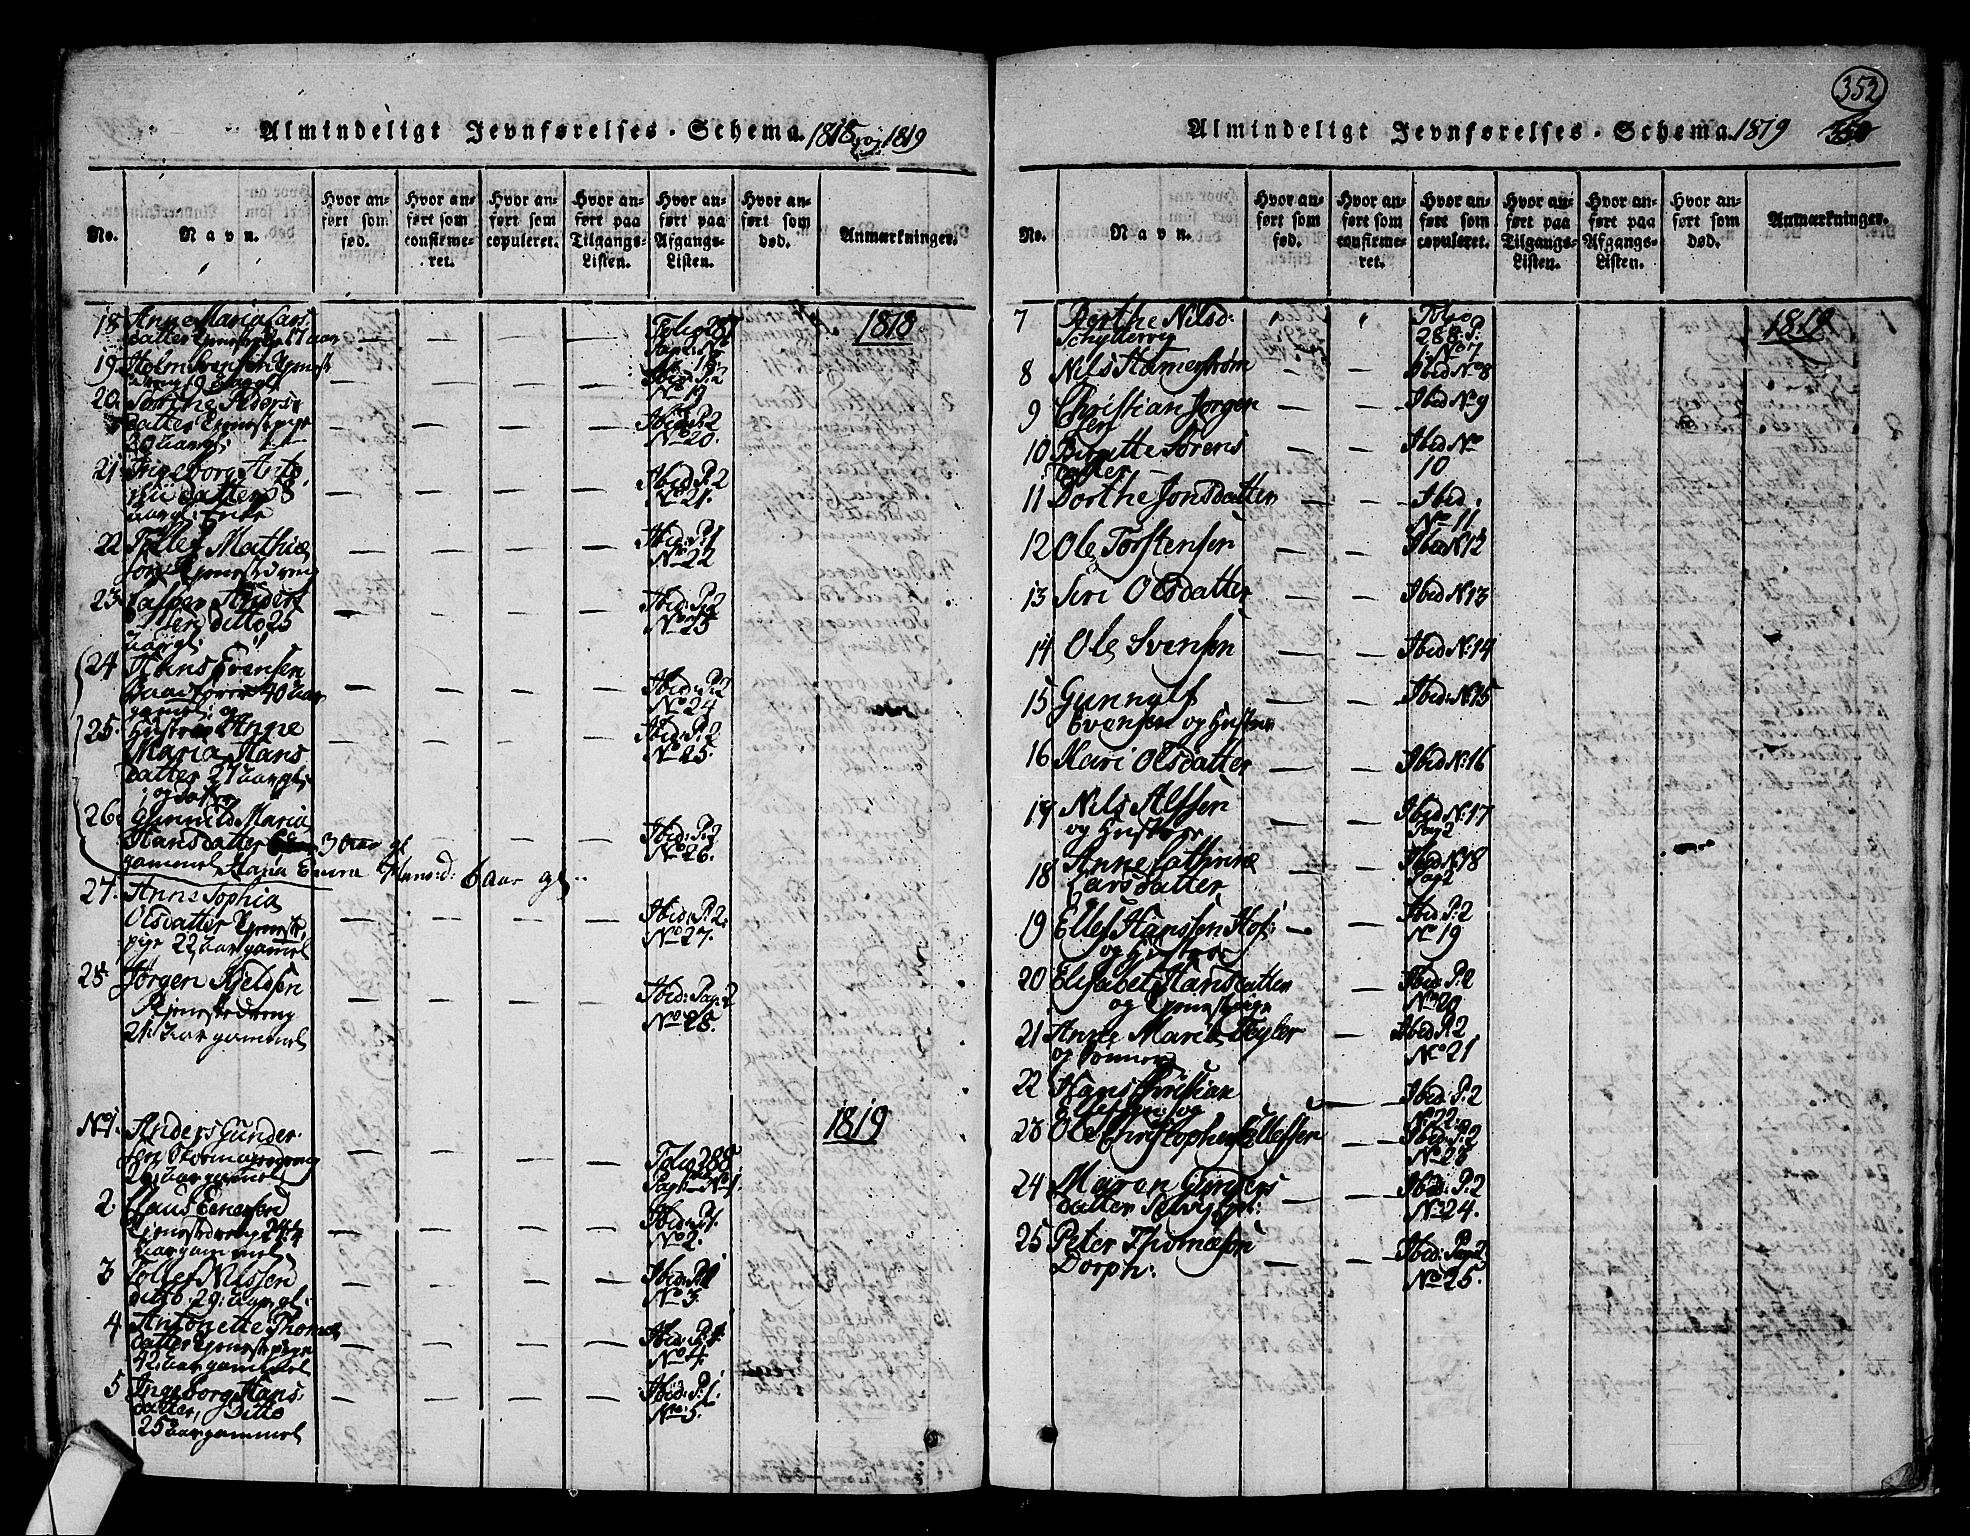 Almindeligt Jevnførelses-Schema 1818 og 1819
No.
Navn.
Hvor anført som fød.
Hvor anført som confirmeret.
Hvor anført som copuleret.
Hvor anført paa Tilgangs-Listen.
Hvor anført paa Afgangs-Listen.
Hvor anført som død.
Anmærkninger.
1818
18 Anne Maria Lars
datter Tjenestepige 17 aar
Folio 287
Pag: 2. No
18.
19 Holm Svensen Tjenest
dreng 19 aargl
Ibid: P: 2
No 19
20. Dorthe Peders
datter Tjenestepige
20 aargl:
Ibid: P: 2
No 20.
21. Ingeborg Anto
nii datter 58
aargl: Enke
Ibid P: 2
No 21.
22 Tollef Mathiæ
sen Tjenestedreng
Ibid: P: 1
No 22
23. Casper Anders
sen ditto 25
aargl:
Ibid: P: 2
No 23
24. Hans Evensen
40 aar
gammel: og
Ibid: P: 2
No 24
25. Hustrue Anne
Maria Hans
datter 27 aar gl:
og datter
Ibid: P: 2
No 25.
26. Gunnild Maria
Hansdatter 3 aar gl
gammel Maria Hans:d: 6 aar gl:
Ibid: P: 2
No 26.
27. Anne Sophia
Olsdatter Tjeneste
pige 22 aar gammel
Ibid: P: 2.
No 27.
28. Jørgen Kjelsen
Tjenestedreng
21: aar gammel
Ibid: Pag: 2
No 28.
1819
No 1. Anders Gunder
sen
26 aar gammel
Folio 288
Pag 1 No 1
2 Claus Enersen
Tjenestedreng 24
aar gammel
Ibid: P 1.
No 2.
3 Tollef Nilssen
ditto. 29: aar, gl:
Ibid: P 1
No 3.
4 Antonette Thomes
datter Tjenestepige
42: aar gammel
Ibid: P: 1
No 4.
5 Ingeborg Hans
datter, Ditto
25 aar gammel
Ibid: P: 1.
No: 5.
352
Almindeligt Jevnførelses-Schema 1819
No.
Navn.
Hvor anført som fød.
Hvor anført som confirmeret.
Hvor anført som copuleret.
Hvor anført paa Tilgangs-Listen.
Hvor anført paa Afgangs-Listen.
Hvor anført som død.
Anmærkninger.
1819
7 Dorthe Nilsd:
Folio
288: P:
1. No 7
8 Nils Hamerstrøm
Ibid No 8
9 Christian Jørgen
sen
Ibid No 9
10 Birgitte Sørens
datter
Ibid No
10
11 Dorthe Jonsdatter
Ibid:
No 11.
12 Ole Torstensen
Ibid N: 12
13 Siri Olsdatter
Ibid N: 13
14 Ole Svensen
Ibid N: 14
15 Gunnulf
Evensen og Hustrue
Ibid: N: 15
16 Kari Olsdatter
Ibid N: 16
17 Nils Alfsen
og Hustroe
Ibid N: 17
Pag 2
18 Anne Cathrine
Larsdatter
Ibid N: 18
Pag 2
19 Ellef Hanssen Hof:
og Hustroe
Ibid: P: 2
No 19
20 Elisabet Hansdatter
og Tjenestpige
Ibid: P: 2
No 20
21 Anne Marie Tegler
og Sønner
Ibid P: 2
No 21
22 Hans Christian
Ellefsen og
Ibid: P: 2
No 22:
23 Ole Christopher Ellefsen
Ibid: P: 2
No 23
24 Maren Gunders
datter
Ibid: P: 2
No 24.
25 Peter Thomesen
Dorph:
Ibid: Pag: 2
No 25.